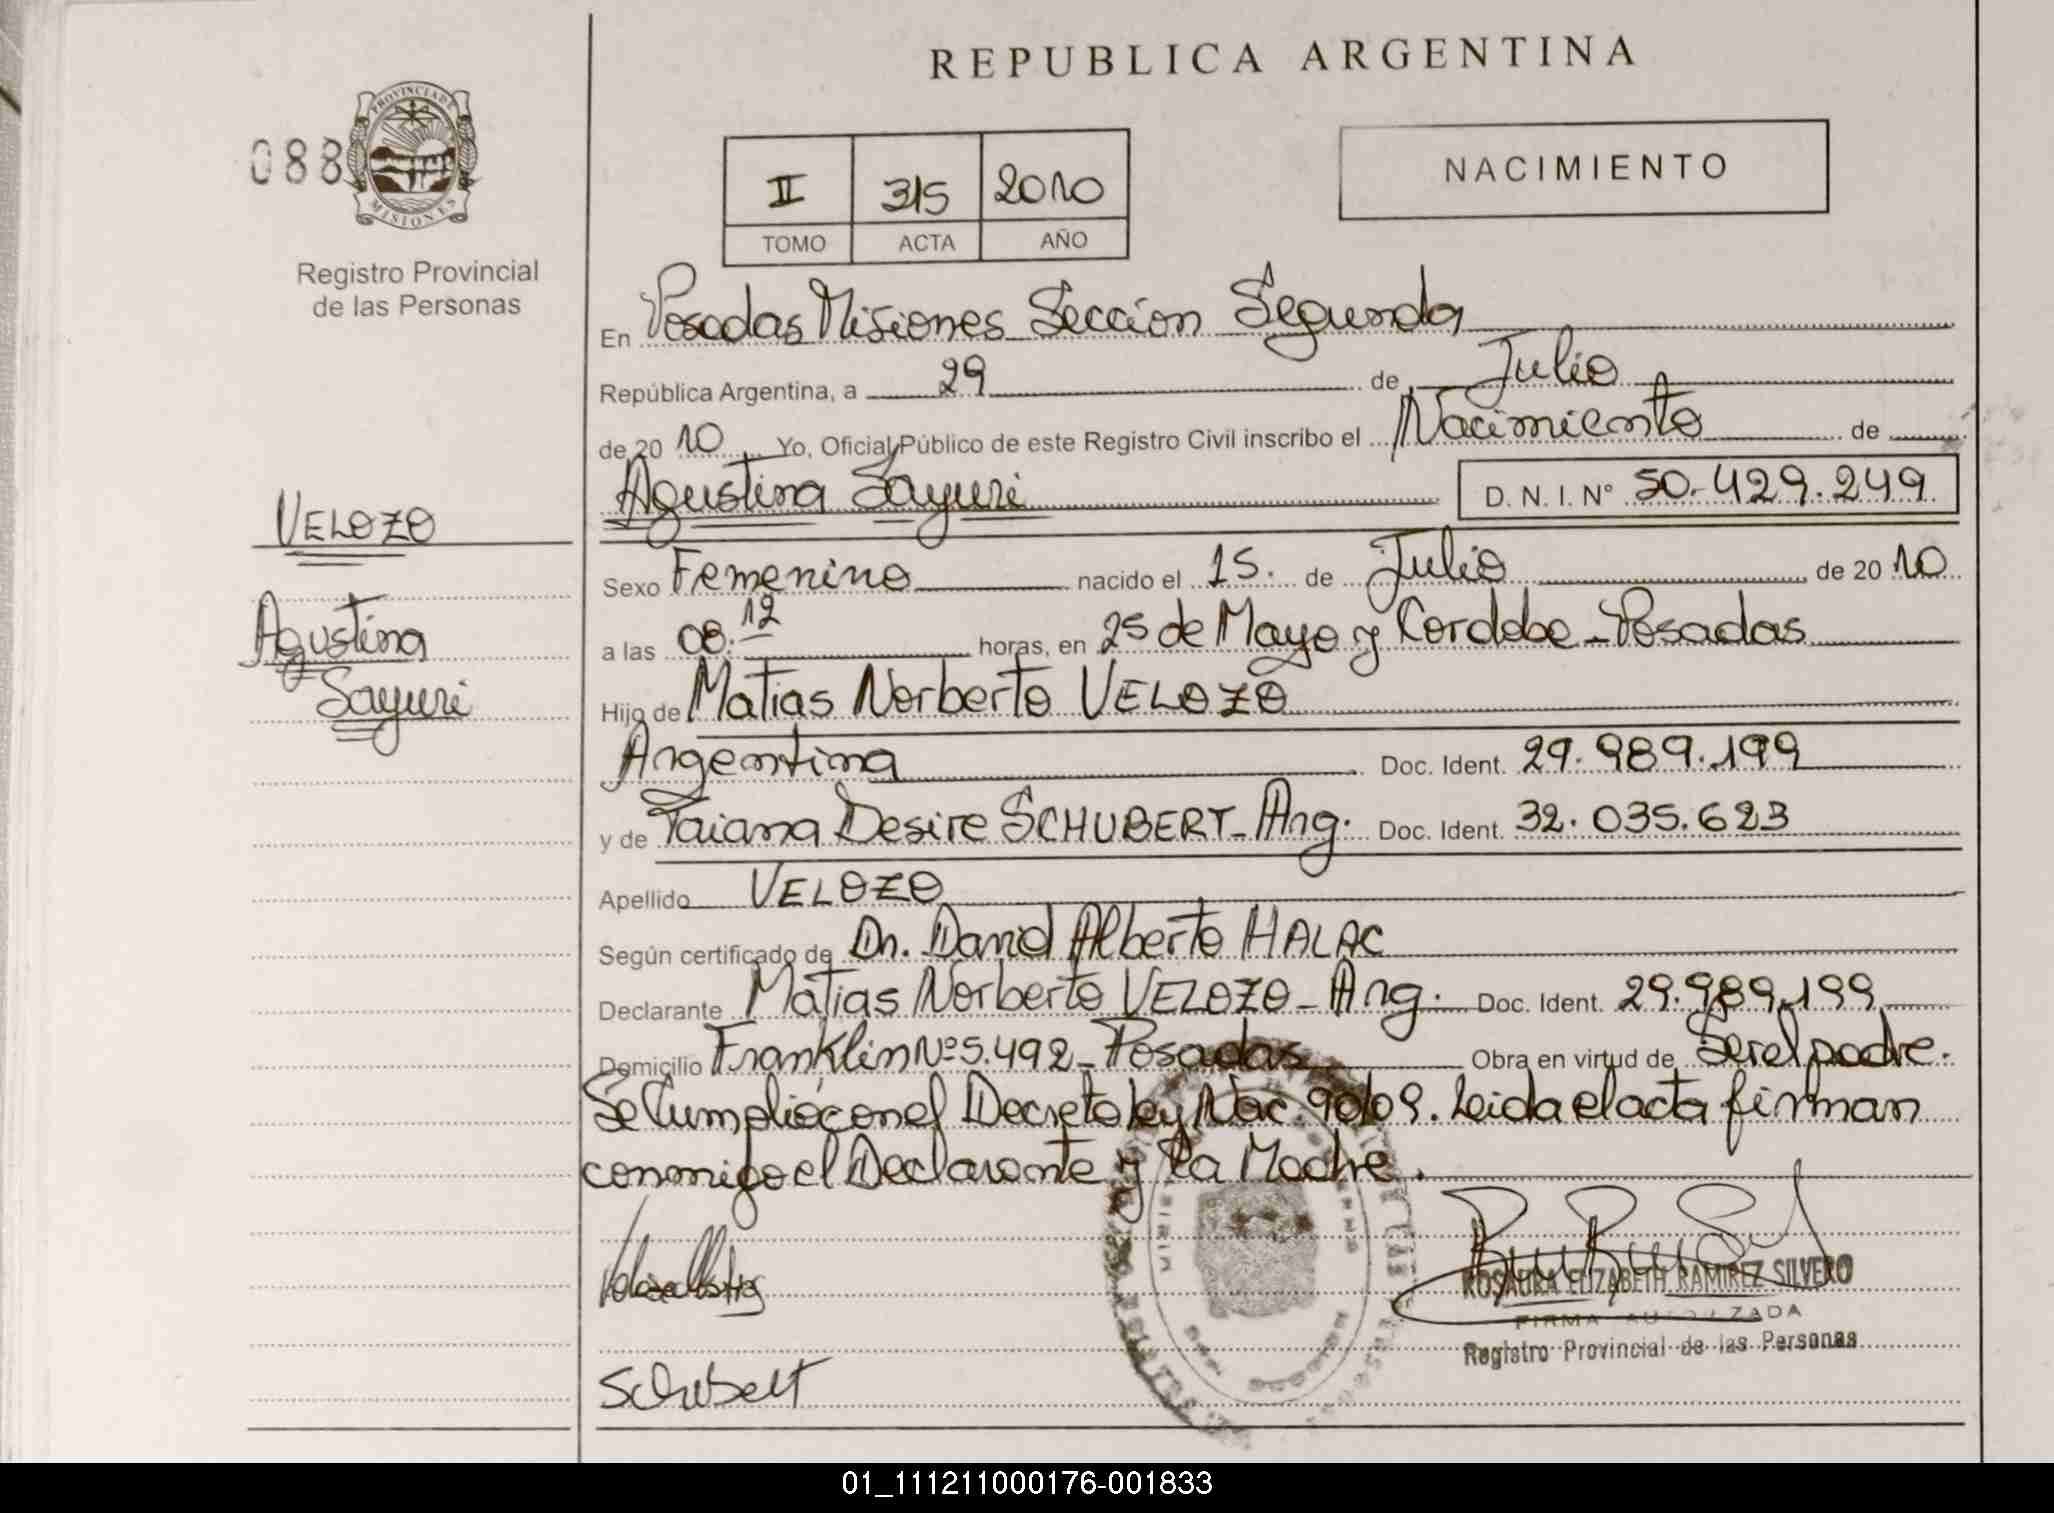 REPUBLICA ARGENTINA
088
PROVINCIA DE
MISIONES
Registro Provincial
de las Personas
II 315 2010
TOMO ACTA AÑO
NACIMIENTO
En Posadas Misiones Seccion Segunda
República Argentina, a 29 de Julio
de 20 10 Yo, Oficial Público de este Registro Civil inscribo el Nacimiento de
Agustina Sayuri D. N. I. Nº 50.429.249
VELOZO
Agustina
Sayuri
Sexo Femenino nacido el 15. de Julio de 20 10
a las 08.12 horas, en 25 de Mayo y Cordoba - Posadas
Hijo de Matias Norberto VELOZO
Argentina Doc. Ident. 29.989.199
y de Taiana Desire SCHUBERT - Arg. Doc. Ident. 32.035.623
Apellido VELOZO
Según certificado de Dr. David Alberto HALAC
Declarante Matias Norberto VELOZO - Arg. Doc. Ident. 29.989.199
Domicilio Franklin Nº 5.492 - Posadas Obra en virtud de Ser el padre.
Se Cumplió con el Decreto ley Nac. Leida el acta firman
conmigo el Declarante y la Madre.
ROSAURA ELIZABETH RAMIREZ SILVERO
FIRMA AUTORIZADA
Registro Provincial de las Personas
Schubert
01_111211000176-001833